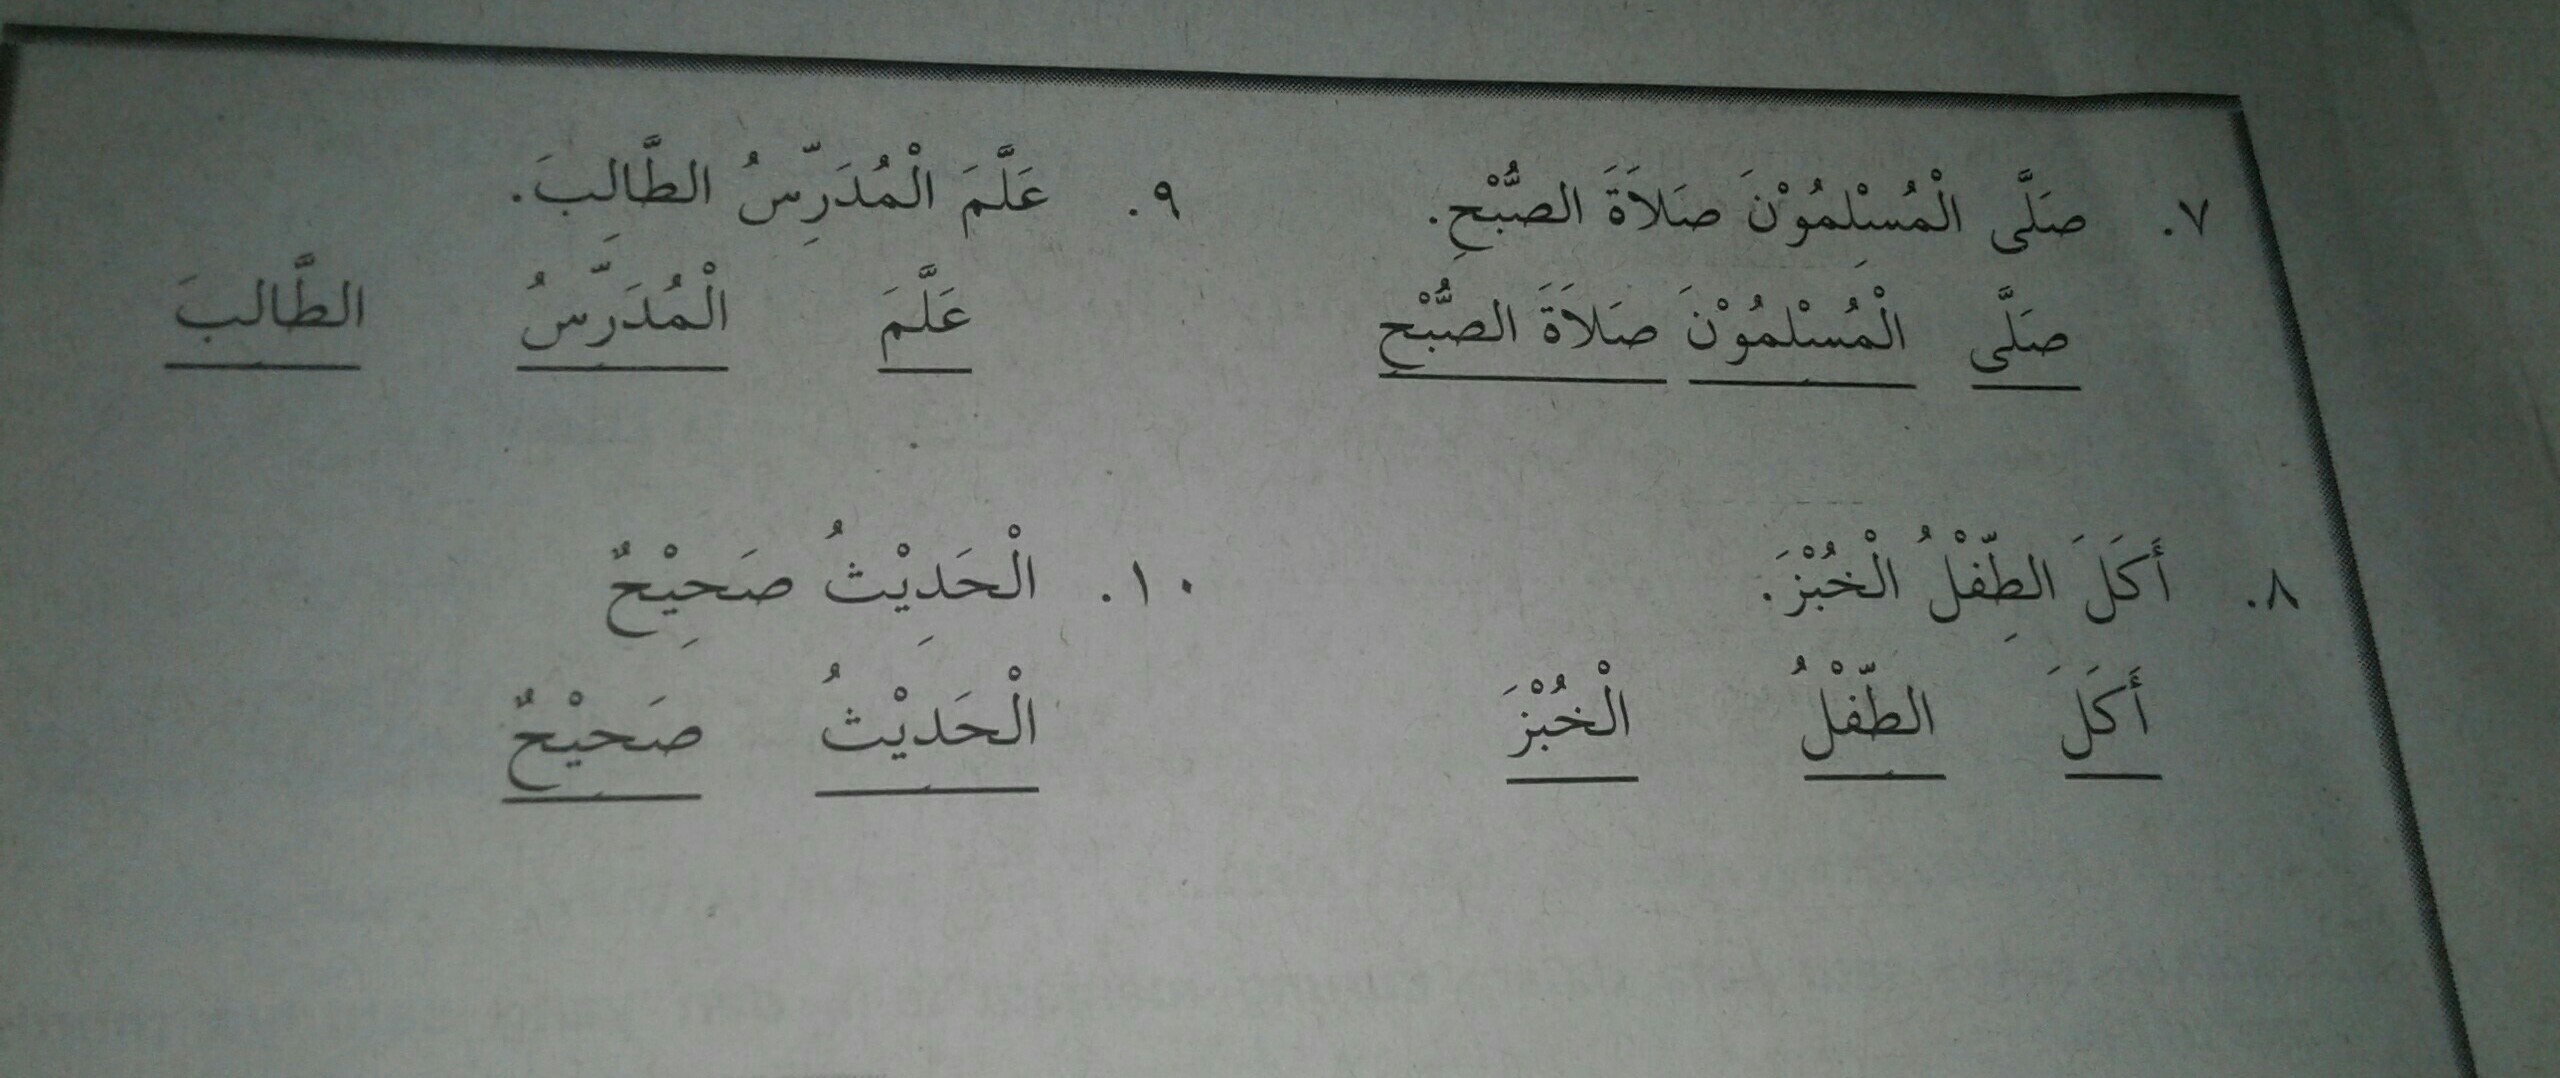 ٧. صَلَّى الْمُسْلِمُوْنَ صَلاَةَ الصُّبْحِ.
صَلَّى الْمُسْلِمُوْنَ صَلاَةَ الصُّبْحِ
٨. أَكَلَ الطِّفْلُ الْخُبْزَ.
أَكَلَ الطِّفْلُ الْخُبْزَ
٩. عَلَّمَ الْمُدَرِّسُ الطَّالِبَ.
عَلَّمَ الْمُدَرِّسُ الطَّالِبَ
١٠. الْحَدِيْثُ صَحِيْحٌ
الْحَدِيْثُ صَحِيْحٌ